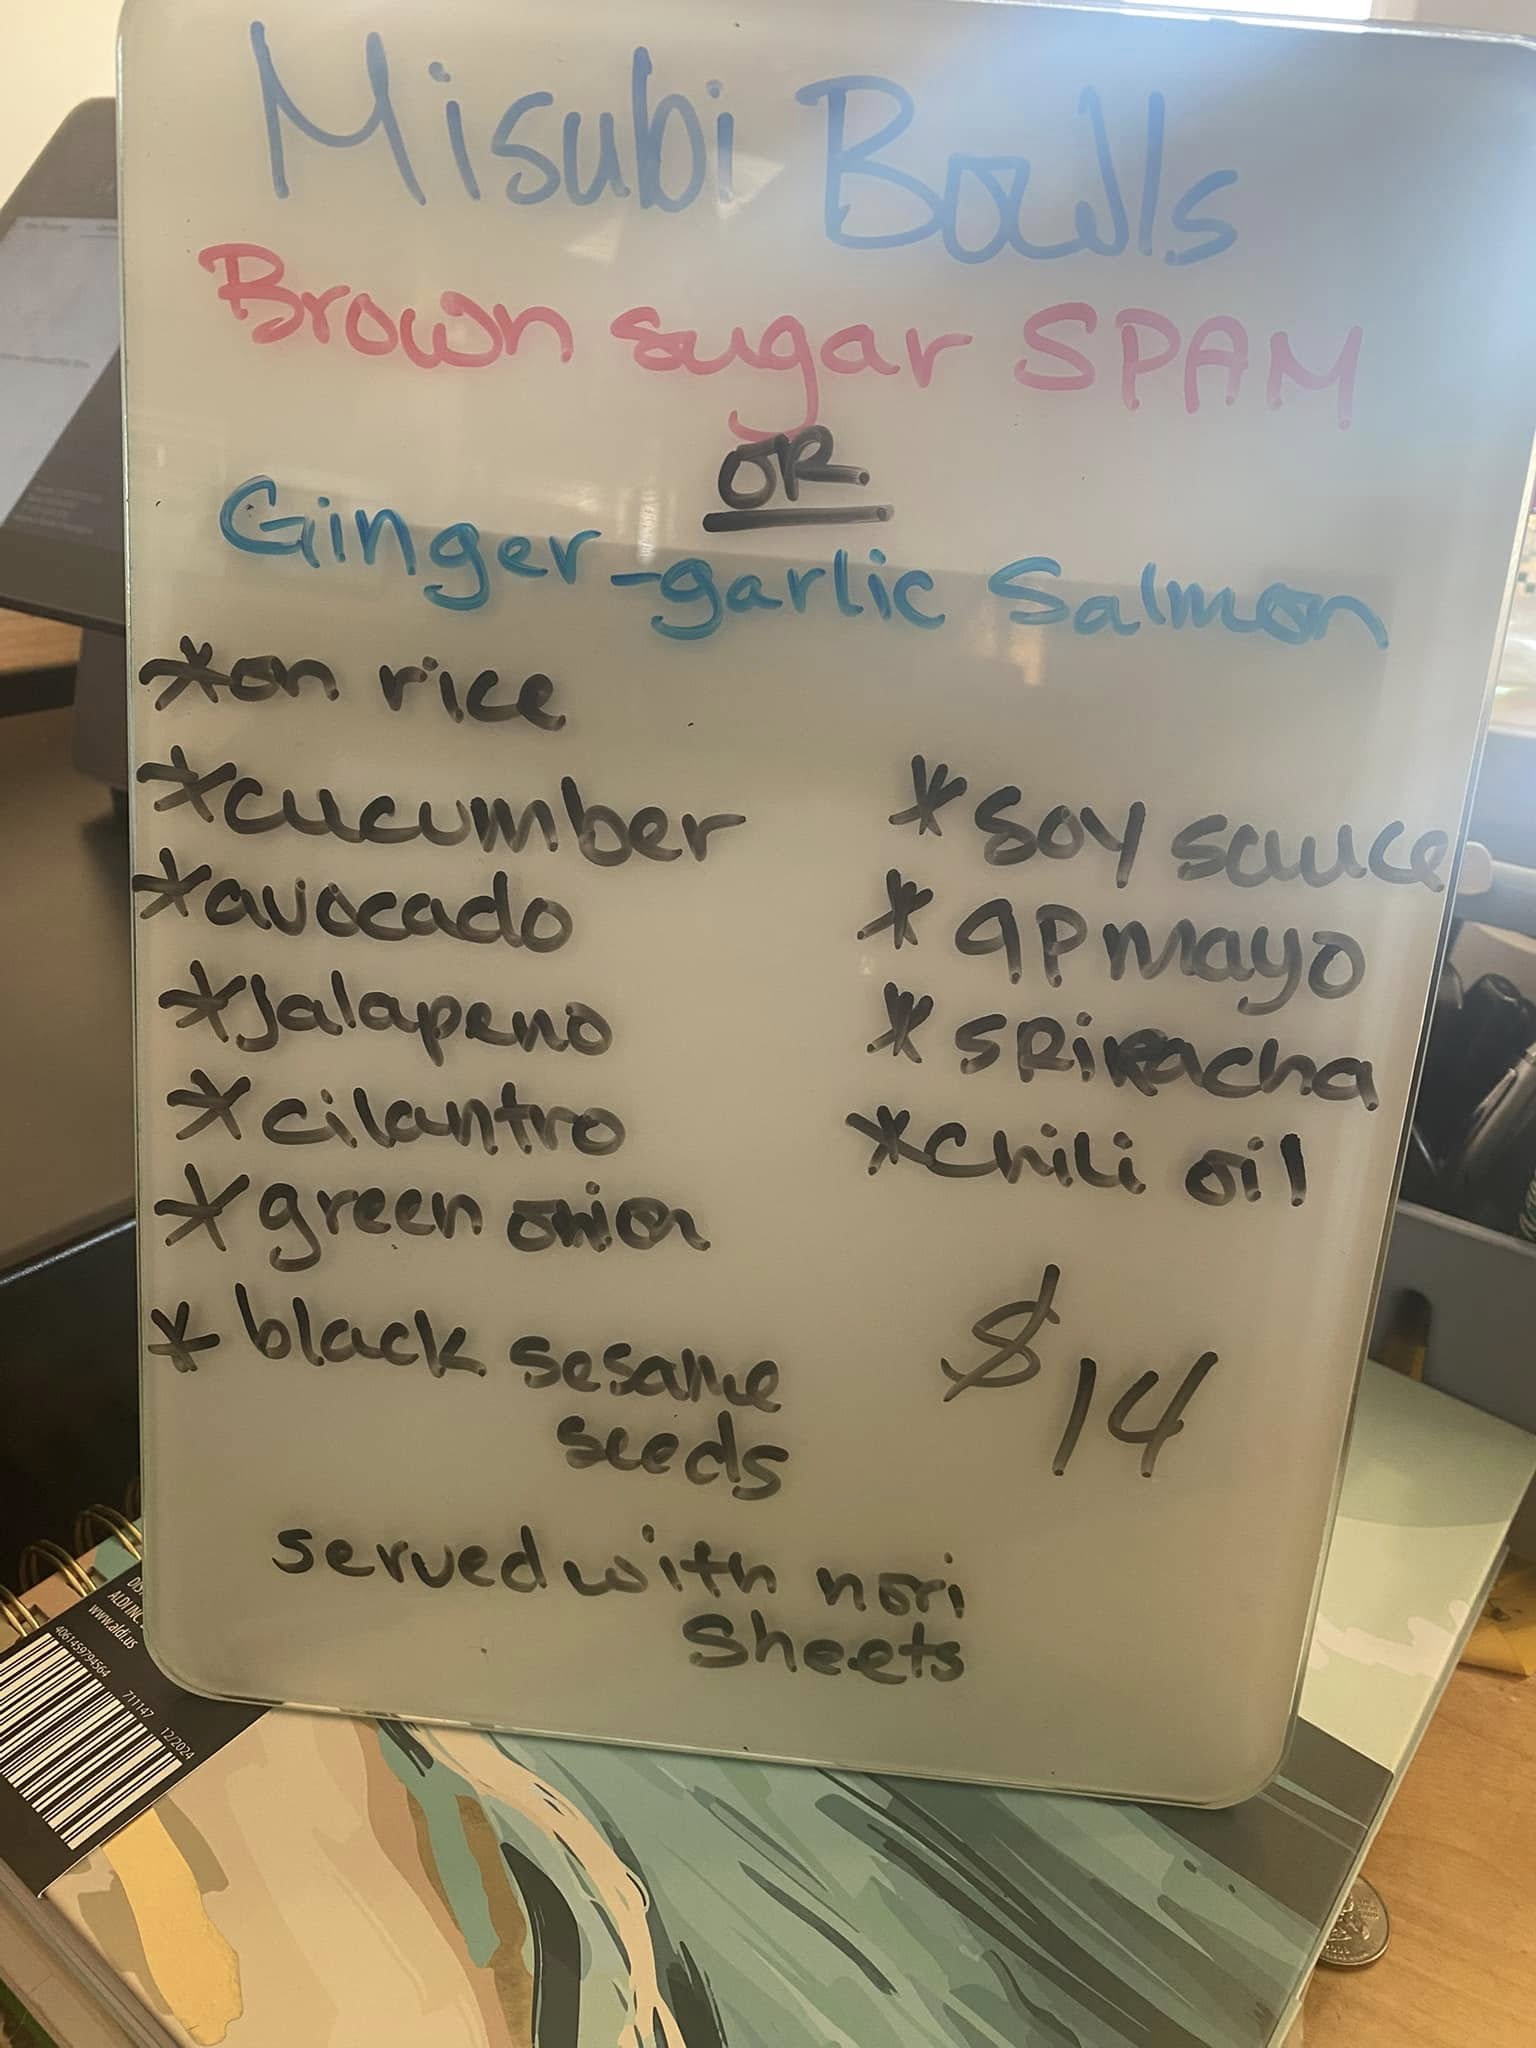 Misubi Bowls
Brown sugar SPAM
OR
Ginger-garlic Salmon
*on rice
*cucumber
*avocado
*jalapeno
*cilantro
*green onion
* black sesame
seeds
*soy sauce
*qp mayo
*sriracha
*chili oil
$14
served with nori
Sheets
ALDI INC
www.aldi.us
4061459794564
711147 12/2024